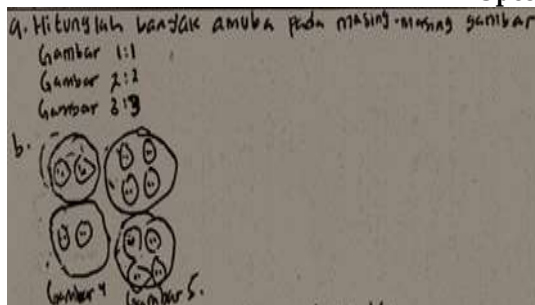 a. Hitunglah banyak amuba pada masing-masing gambar
Gambar 1:1
Gambar 2:2
Gambar 3:3
b.
Gambar 4 Gambar 5.